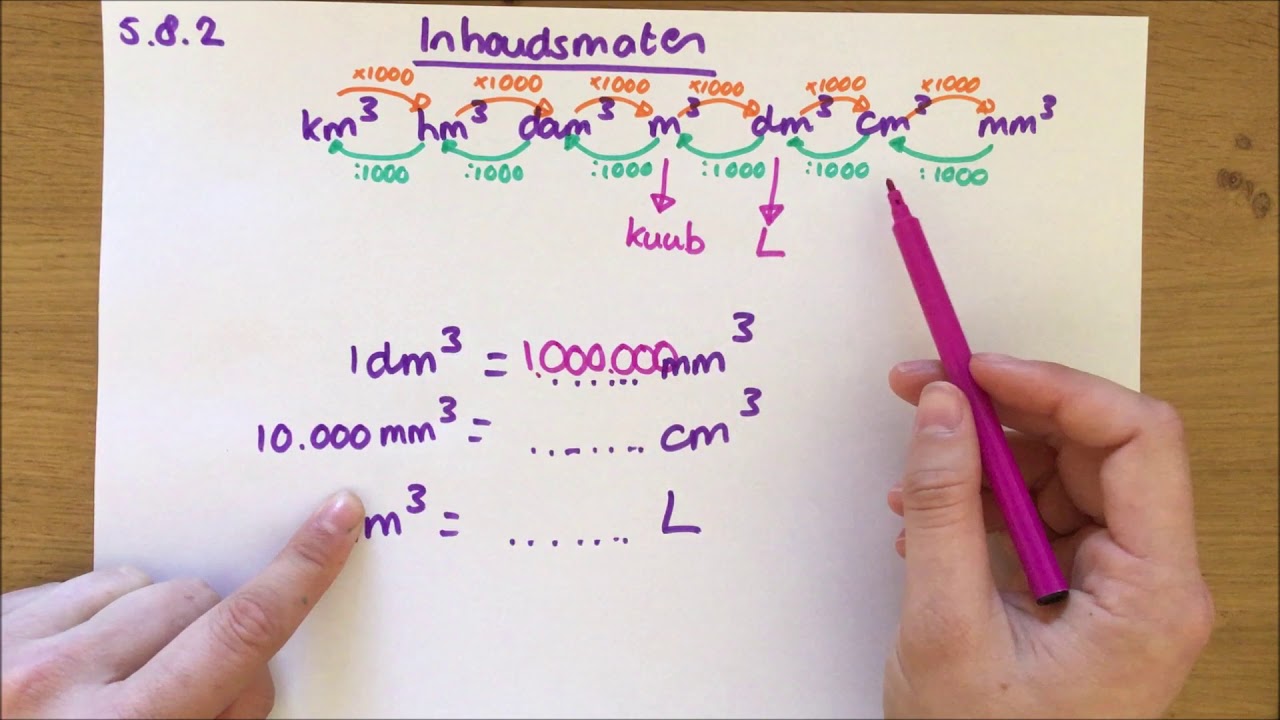 5.8.2
Inhoudsmaten
x1000 x1000 x1000 x1000 x1000 x1000
km³ hm³ dam³ m³ dm³ cm³ mm³
:1000 :1000 :1000 :1000 :1000 :1000
kuub L
1dm³ = 1.000.000 mm³
10.000 mm³ = ...... cm³
m³ = ...... L